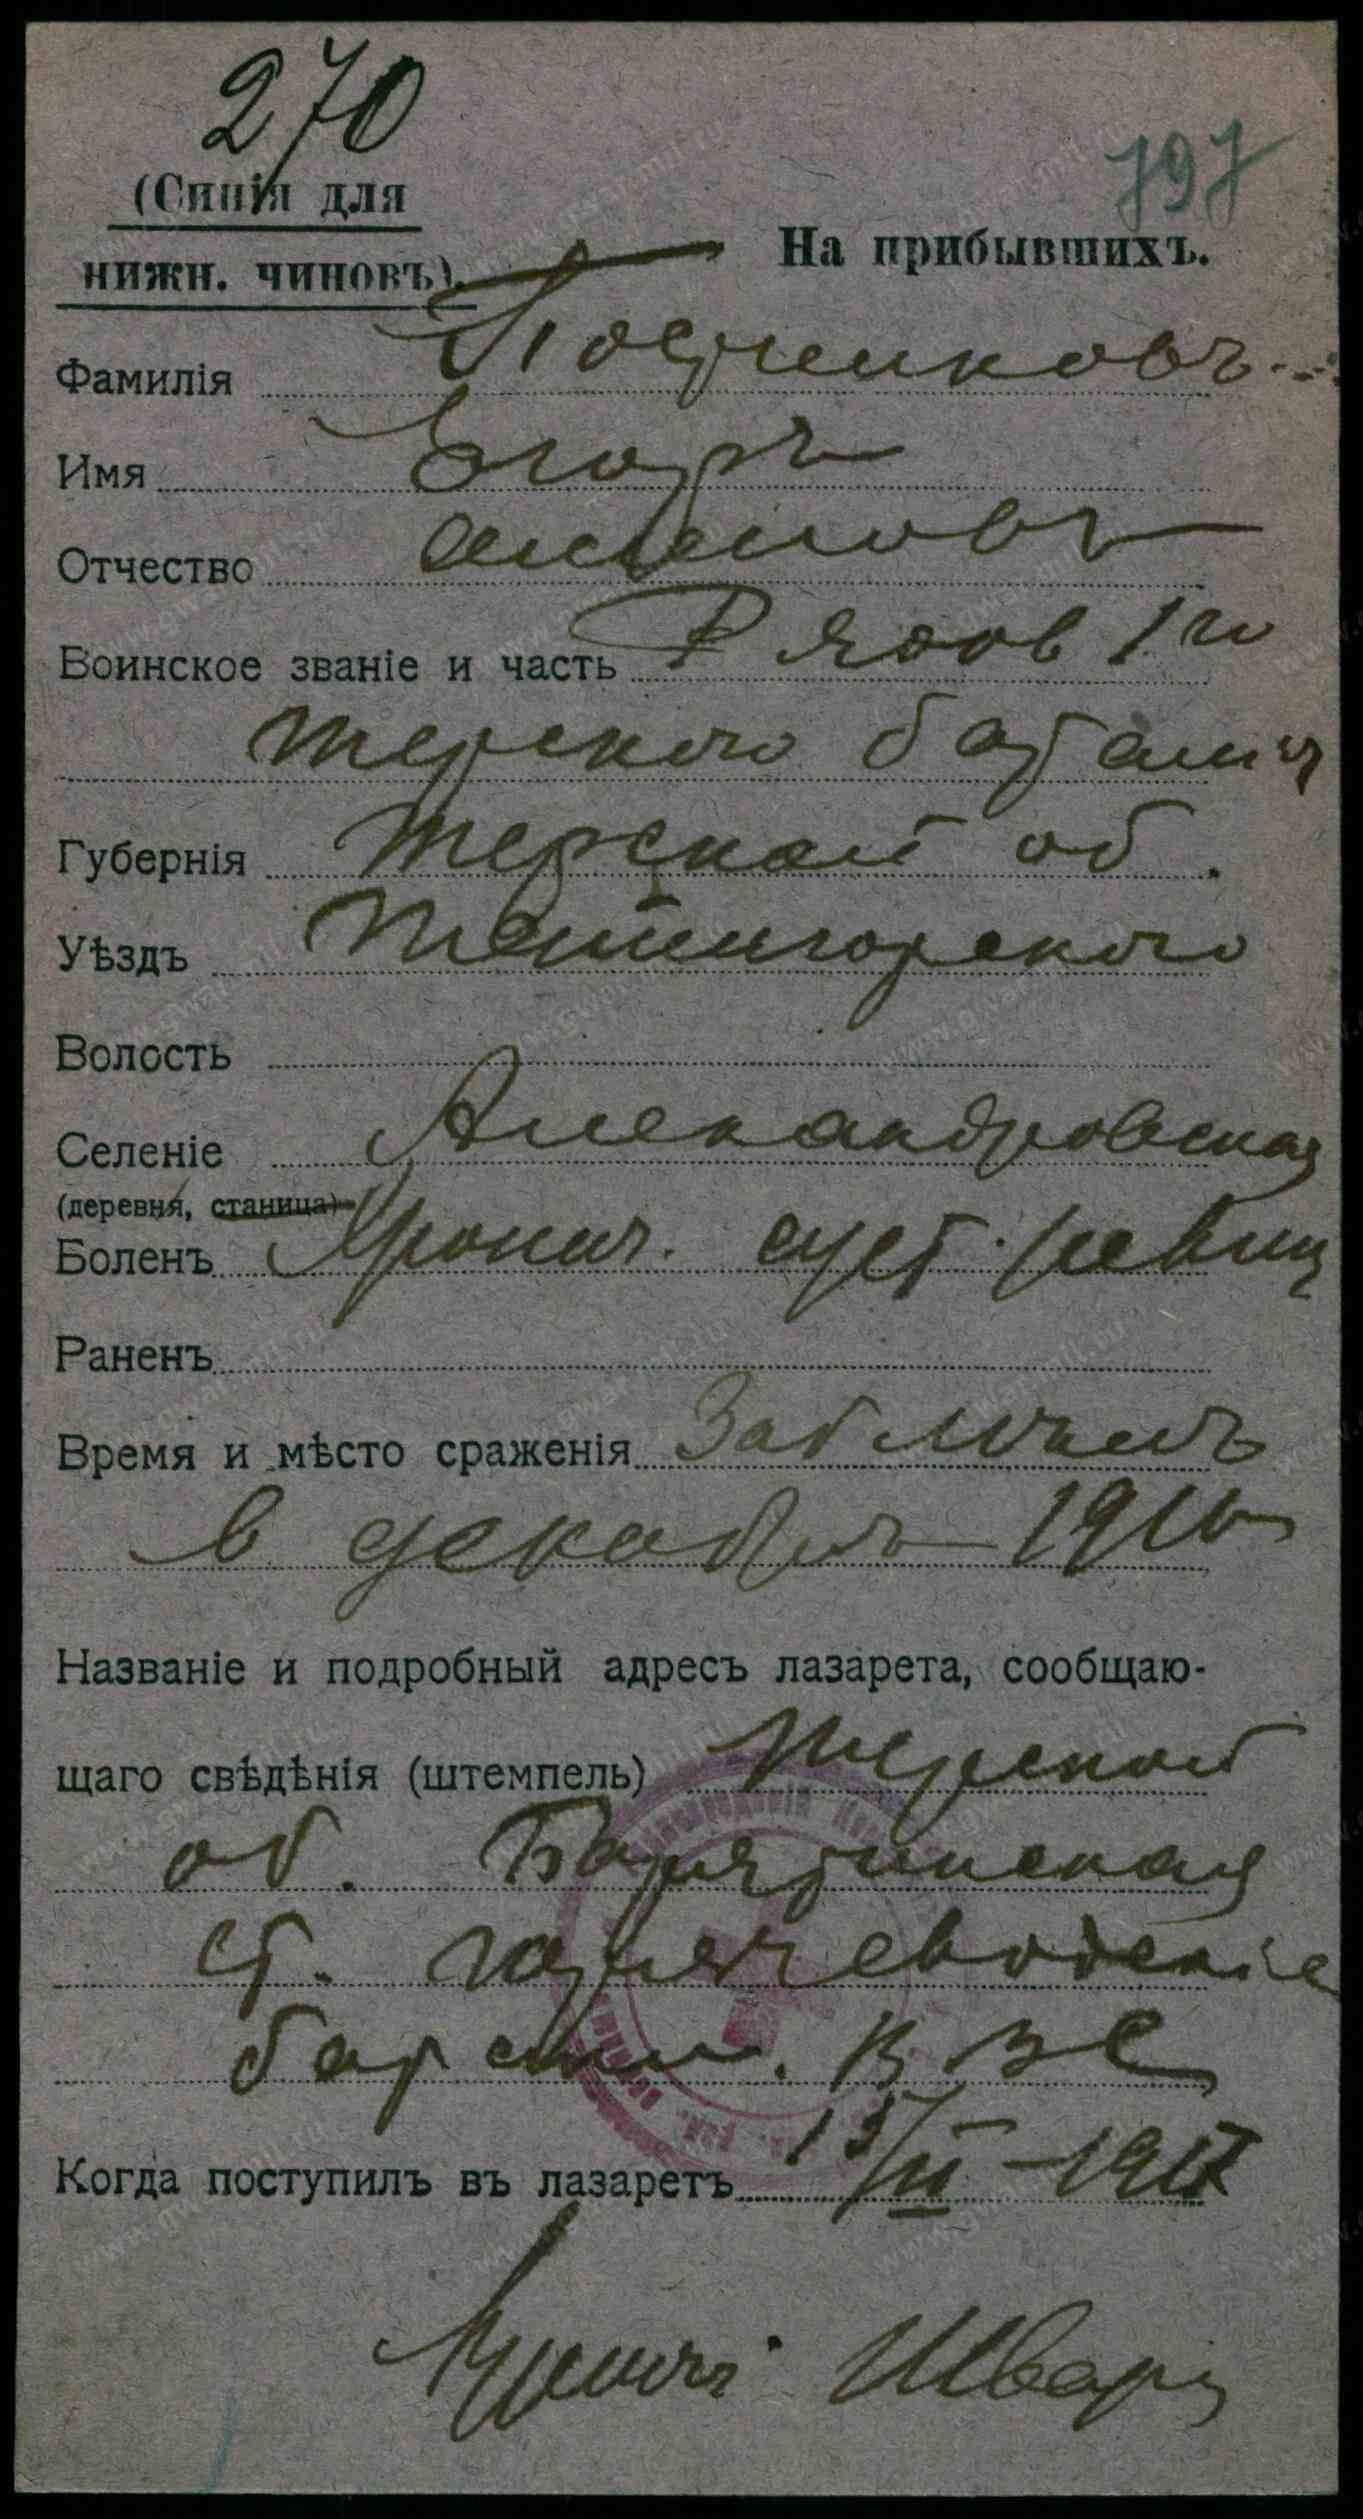 270
797
(Синія для
нижн. чиновъ).
На прибывшихъ.
Фамилія Постниковъ
Имя Егоръ
Отчество
Воинское званіе и часть Рядов 1го
Терского баталіи
Губернія Терской об.
Уѣздъ Пятигорского
Волость
Селеніе Александровская
(деревня, станица)
Боленъ Хронич. суст. ревм
Раненъ
Время и мѣсто сраженія Заболѣлъ
в декабрѣ 1916
Названіе и подробный адресъ лазарета, сообщаю-
щаго свѣдѣнія (штемпель) Терской
об. Барятинская
ст. Горячеводскіе
В З С
Когда поступилъ въ лазаретъ 15/III-1917
Шварц